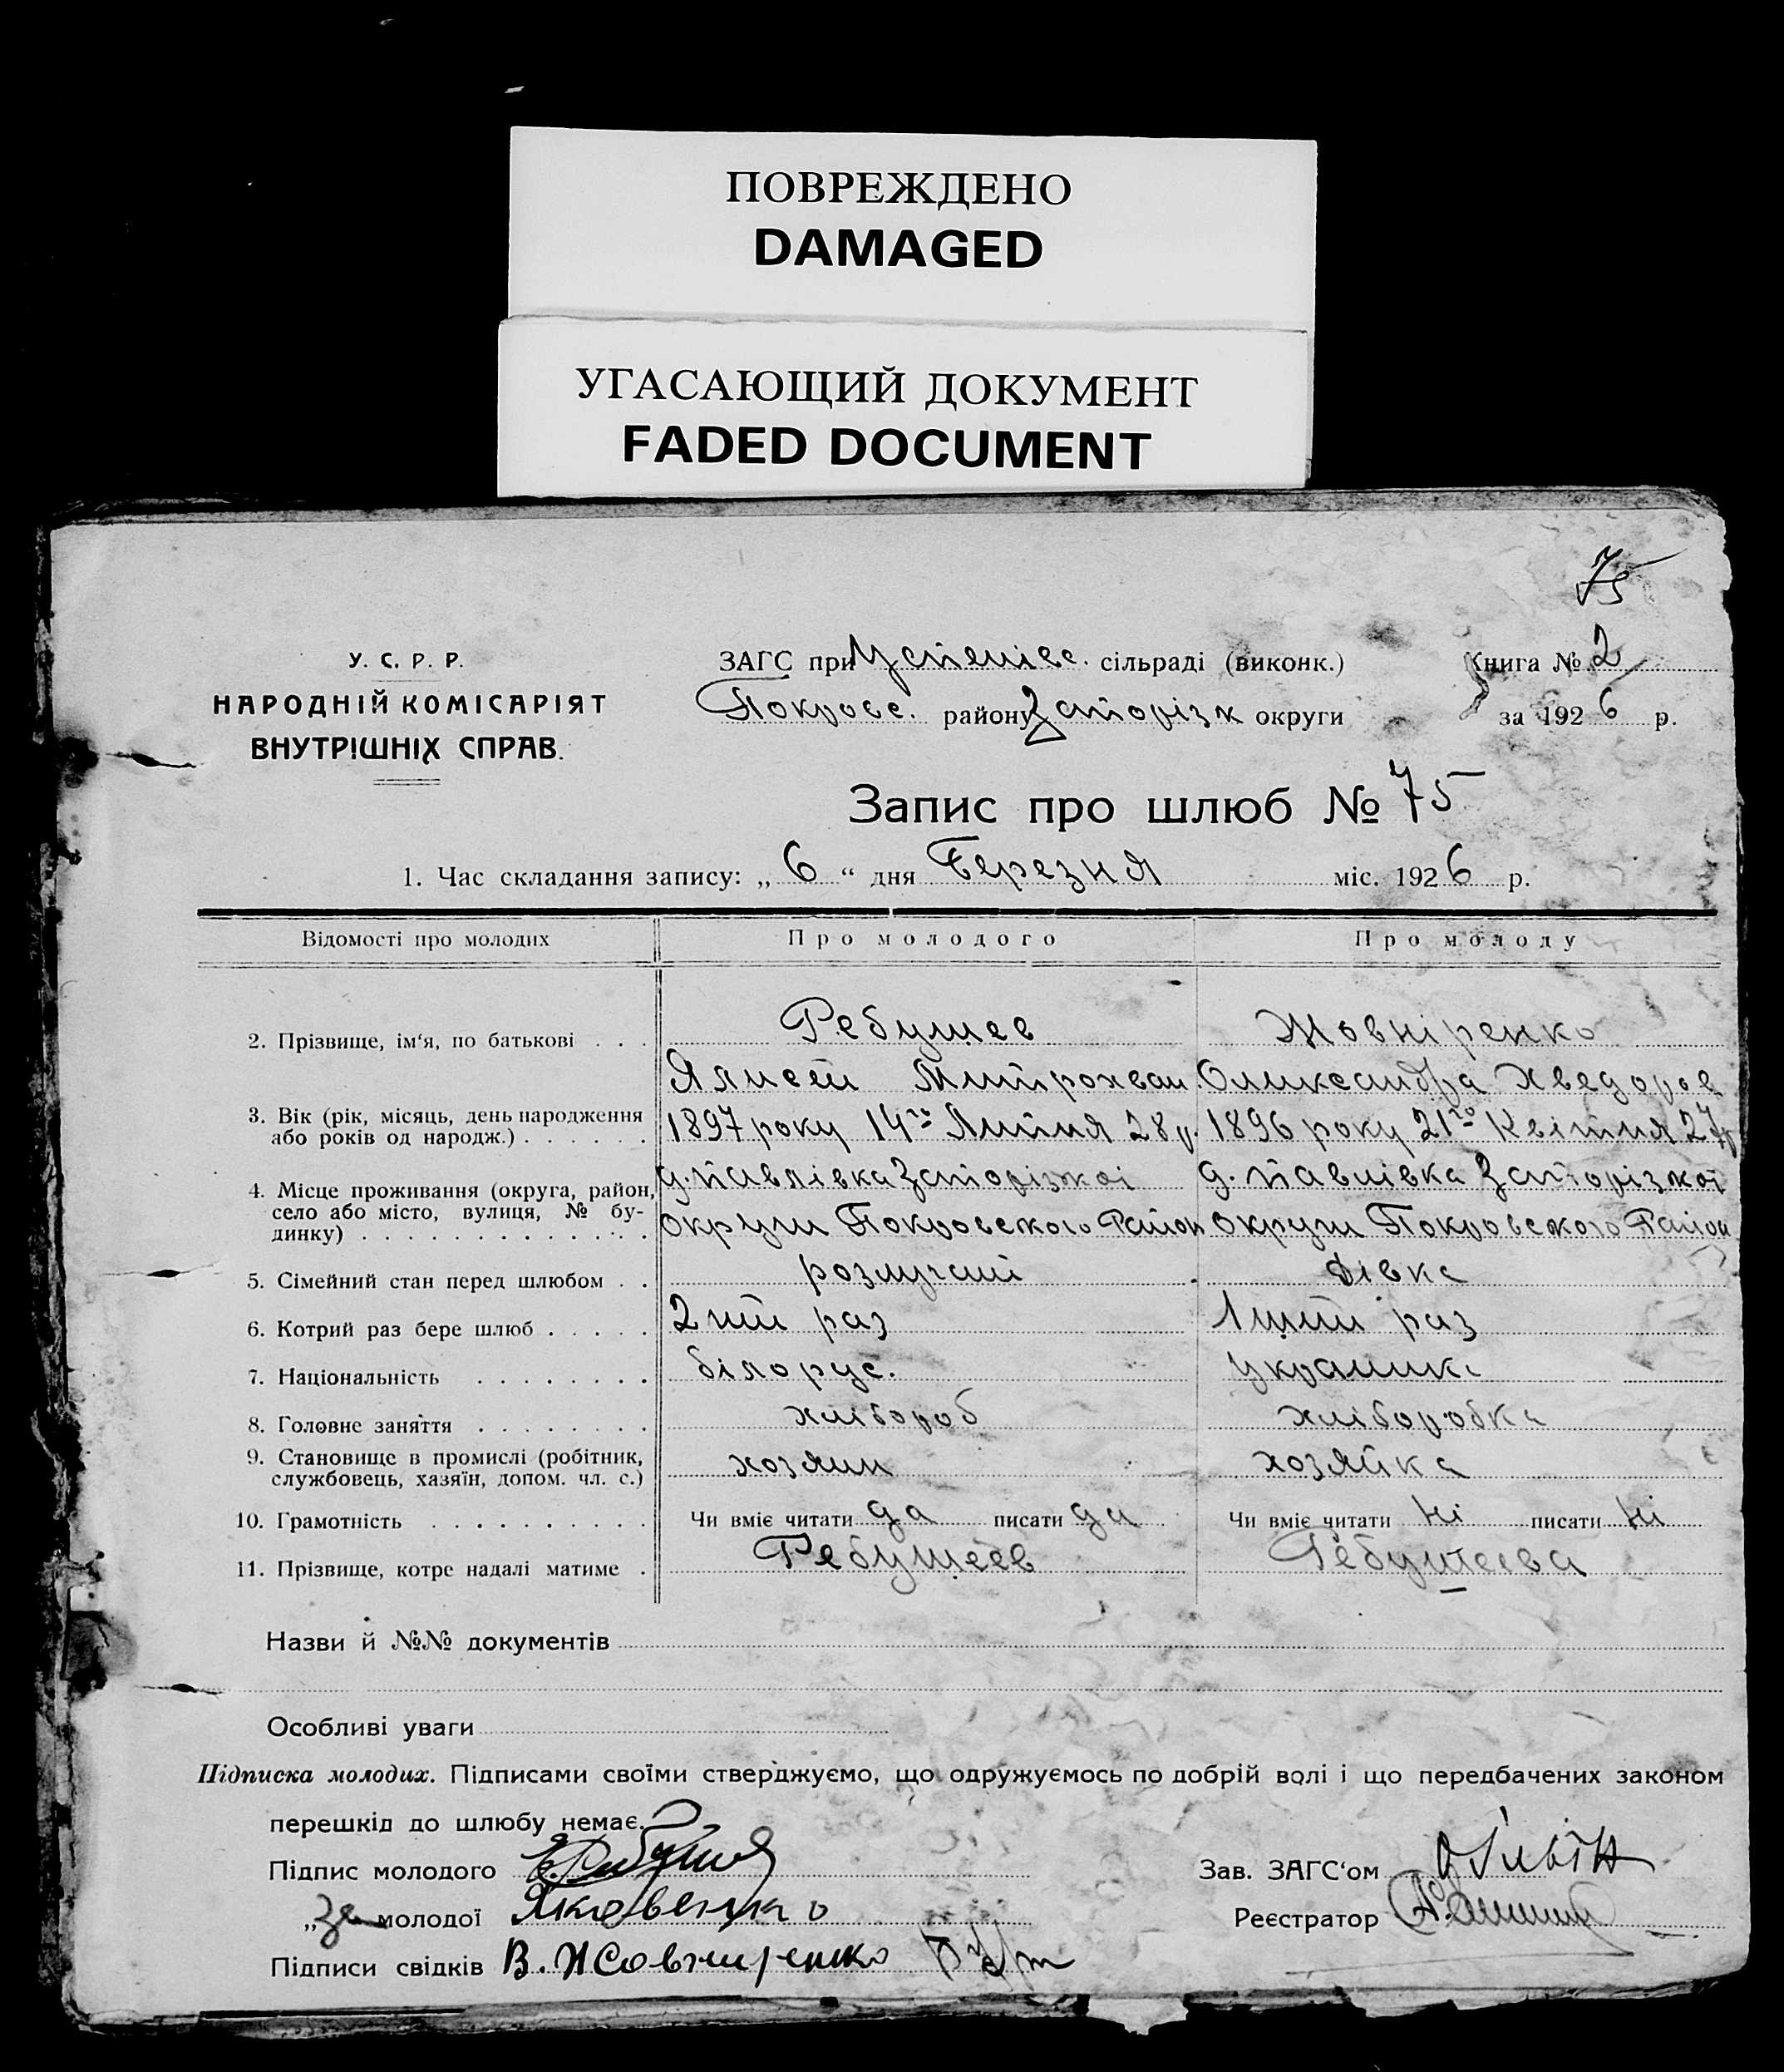 ПОВРЕЖДЕНО
DAMAGED
УГАСАЮЩИЙ ДОКУМЕНТ
FADED DOCUMENT
75
У. С. Р. Р.
НАРОДНІЙ КОМІСАРІЯТ
ВНУТРІШНІХ СПРАВ.
ЗАГС при Успенівс. сільраді (виконк.) Книга № 2
Покровс. району Запоріжк округи за 1926 р.
Запис про шлюб № 75
1. Час складання запису: „ 6 “ дня Березня міс. 1926 р.
Відомості про молодих Про молодого Про молоду
2. Прізвище, ім‘я, по батькові . . . Ребушев Жовніренко
Ялисей Митрохван. Олександра Хведоров
3. Вік (рік, місяць, день народження
або років од народж.) . . . . . . 1897 року 14го Липня 28 р. 1896 року 21го Квітня 27 р
4. Місце проживання (округа, район,
село або місто, вулиця, № бу-
динку) . . . . . . . . . . . . . .
д. Павлівка Запоріжкої д. Павлівка Запоріжкої
округи Покровського Район округи Покровського Район
5. Сімейний стан перед шлюбом . . розлучений дівка
6. Котрий раз бере шлюб . . . . . 2ий раз 1ший раз
7. Національність . . . . . . . . білорус. українка
8. Головне заняття . . . . . . . . хлібороб хлібопобка
9. Становище в промислі (робітник,
службовець, хазяїн, допом. чл. с.) хозяин хозяйка
10. Грамотність . . . . . . . . . . Чи вміє читати да писати да Чи вміє читати ні писати ні
11. Прізвище, котре надалі матиме . Ребушеев Ребушеева
Назви й №№ документів
Особливі уваги
Підписка молодих. Підписами своїми стверджуємо, що одружуємось по добрій волі і що передбачених законом
перешкід до шлюбу немає.
Підпис молодого Зав. ЗАГС‘ом
„ за молодої Яковенко Реєстратор
Підписи свідків В. Жовниренко